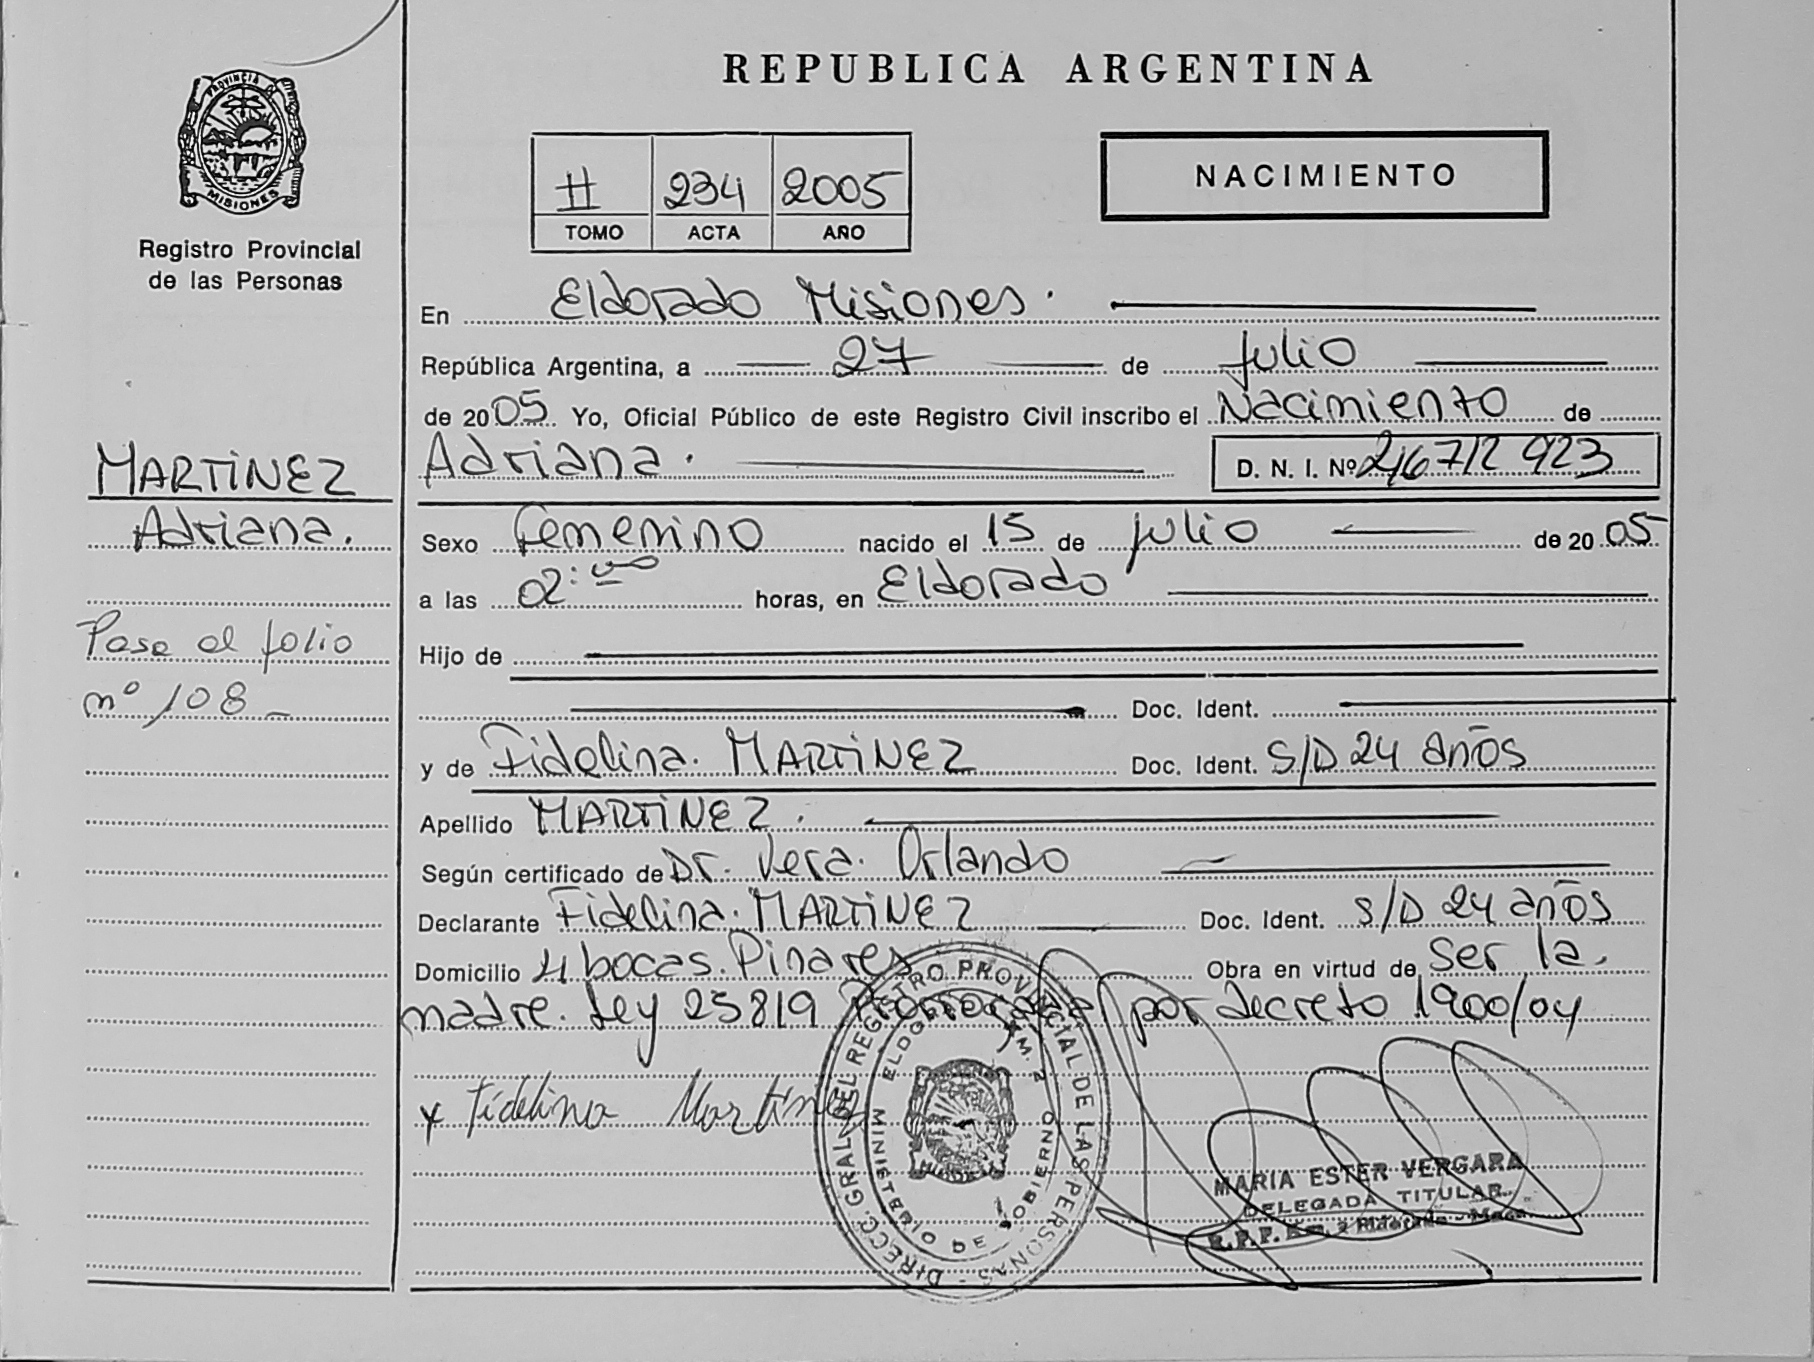 PROVINCIA DE
MISIONES
Registro Provincial
de las Personas
MARTINEZ
Adriana.
Pase al folio
nº 108 -
REPUBLICA ARGENTINA
II 234 2005
TOMO ACTA AÑO
NACIMIENTO
En Eldorado Misiones.
República Argentina, a 27 de julio
de 2005 Yo, Oficial Público de este Registro Civil inscribo el Nacimiento de
Adriana. D. N. I. Nº
Sexo Femenino nacido el 15 de julio de 2005
a las 02:00 horas, en Eldorado
Hijo de
Doc. Ident.
y de Fidelina. MARTINEZ Doc. Ident. S/D 24 años
Apellido MARTINEZ.
Según certificado de Dr. Vera. Orlando
Declarante Fidelina. MARTINEZ Doc. Ident. S/D 24 años
Domicilio 4 bocas. Pinares Obra en virtud de ser la.
madre. Ley 25819 por decreto 1900/04
x Fidelina Martinez
DIRECC. GRAL. DEL REGISTRO PROVINCIAL DE LAS PERSONAS -
MINISTERIO DE GOBIERNO
MARIA ESTER VERGARA
DELEGADA TITULAR